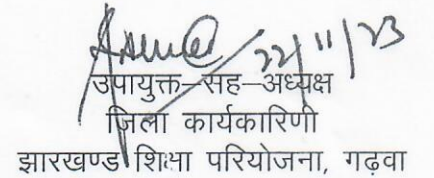 22/11/23
उपायुक्त–सह–अध्यक्ष
जिला कार्यकारिणी
झारखण्ड शिक्षा परियोजना, गढ़वा